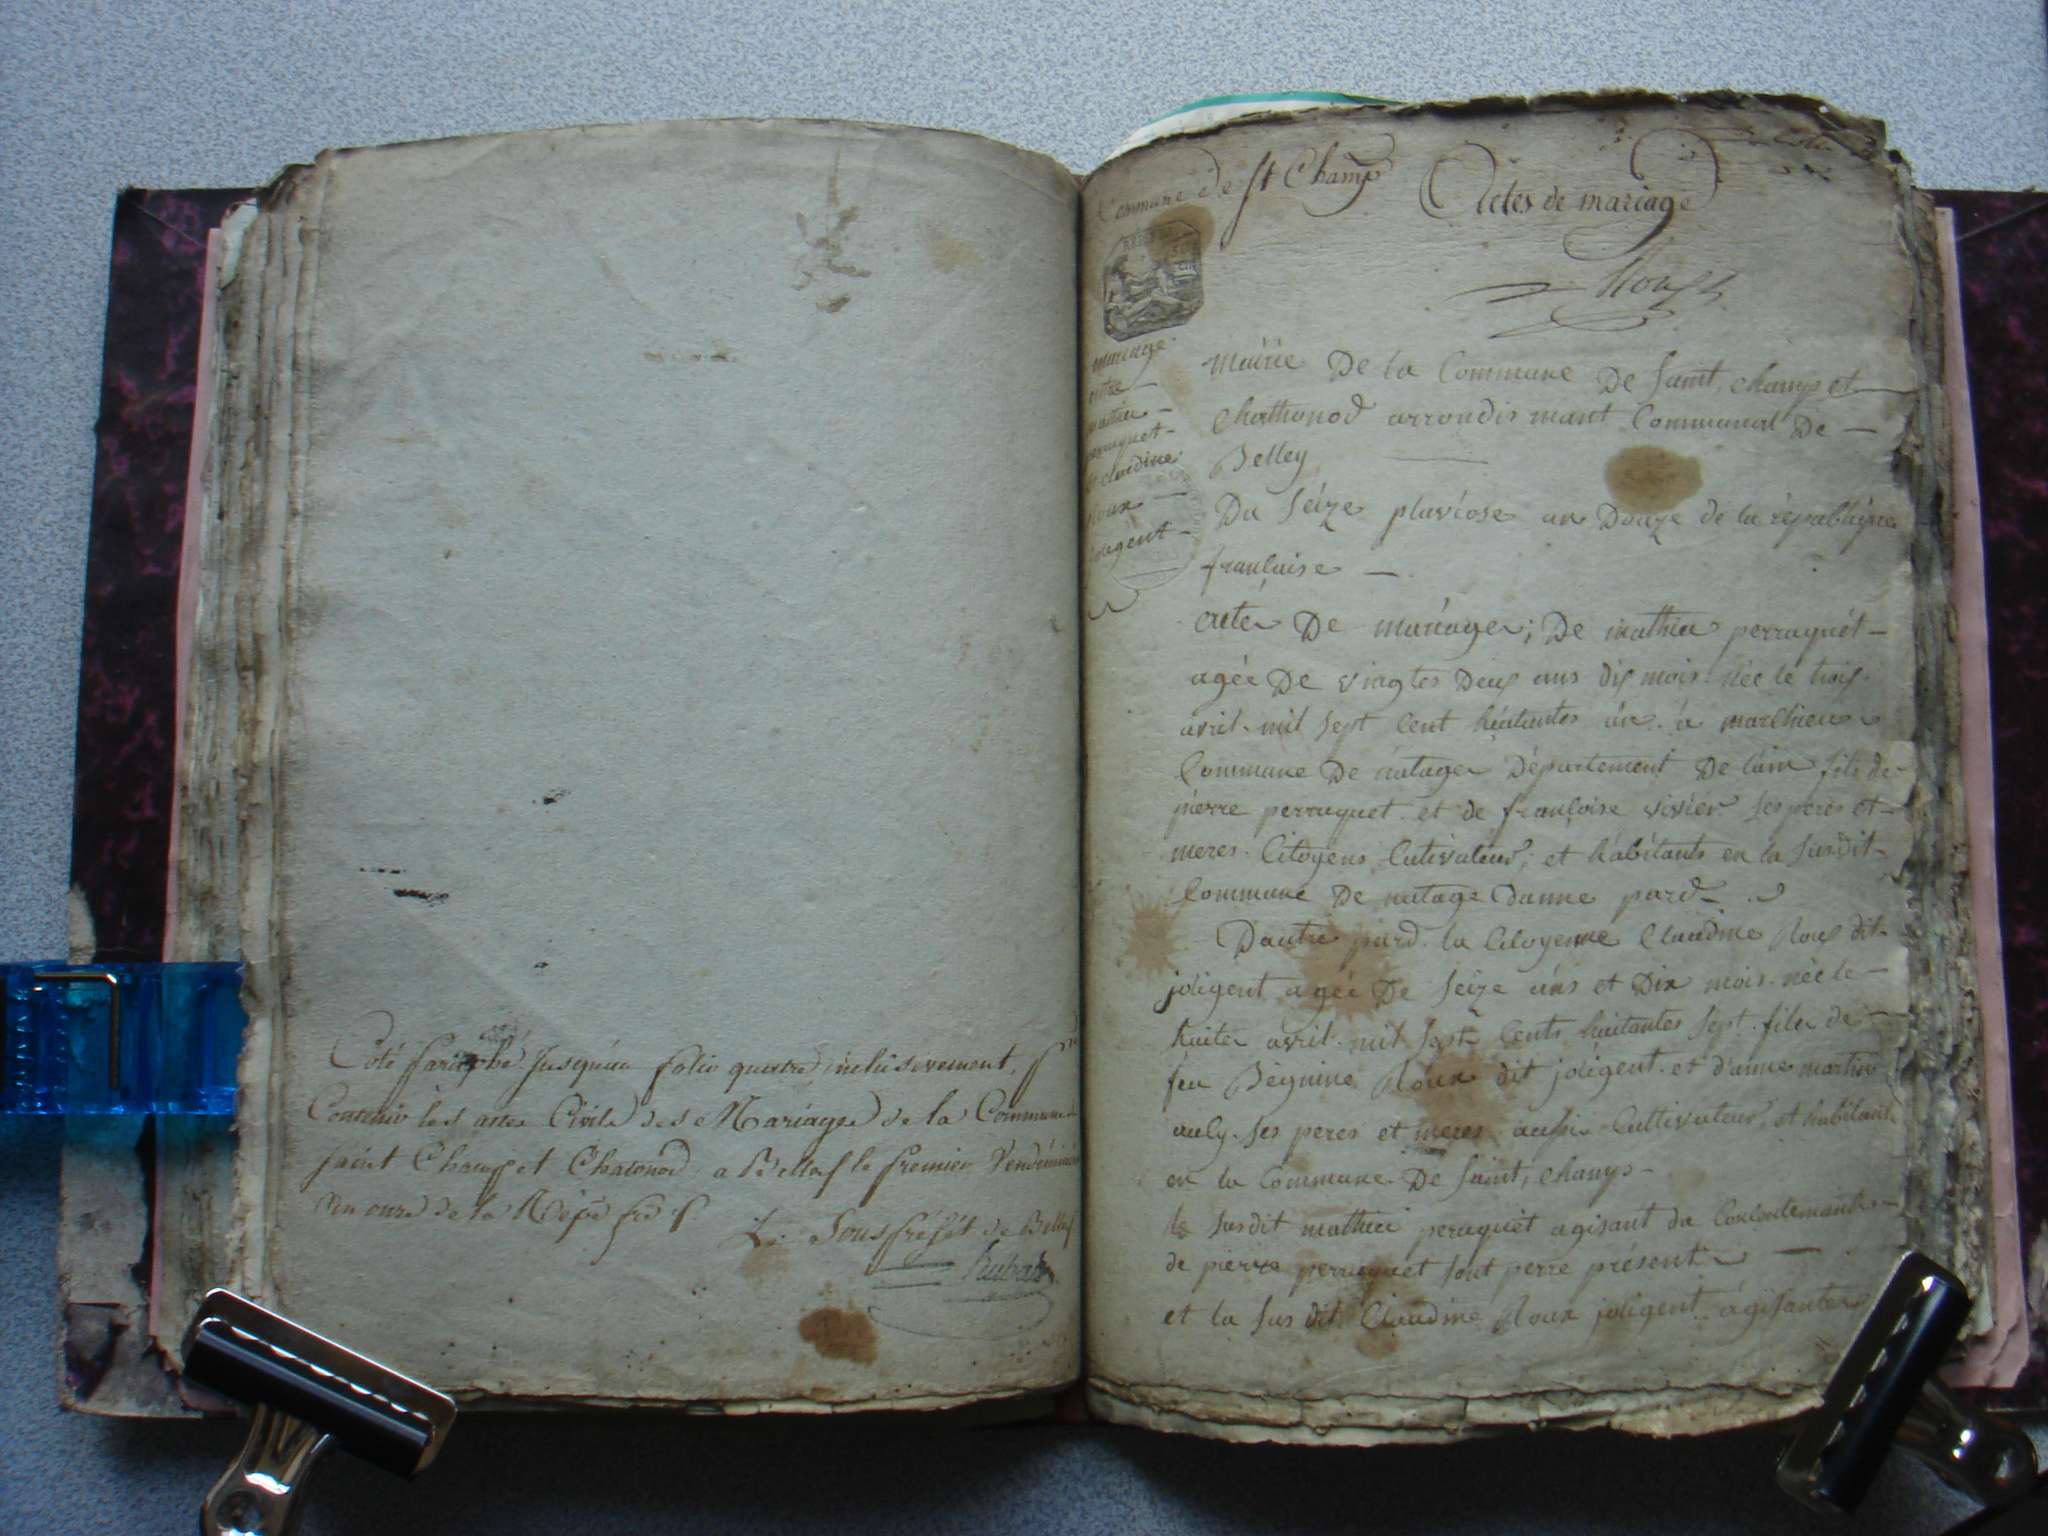 Coté paraphé jusqu'au folio quatre inclusivement, pr
Contenir les actes Civils des Mariages de la Commune de
saint Champ et Chatonod a Belley le premier Vendémiaire
an onze de la Répe fse
Le Sous préfét de Belley
Commune de St Champ
Actes de mariage
Roux
mariage
entre
mathieu
perruquet
et claudine
Roux
joligent
Mairie De la Commune De Saint, champ et
Chathonod arrondismant Communal De
Belley
Du Seize pluviose an Douze de la république
françaîse
acte De mariage; De mathieu perruquét
agée De vingtes Deux ans dix mois née le trois
avril mil Sept Cent huitantes un à marchieu
Commune De natage Département De lain fils de
pierre perruquet et de françoise vivier Ses peres et
meres Citoyens Cutivateur, et habitants en la Susdit
Commune De natage Dunne pard
Dautre pard la Citoyenne Claudine Roux dit
joligent agée De Seize ans et Dix mois née le
huite avril mil Sept Cents huitantes Sept fille de
feu Bégnine Roux dit joligent et d'anne martin
Ses peres et meres aussi Cultivateur, et habitans
en la Commune De Saint, champ
le Susdit mathieu peruquét agisant du Consentemant
de pierre perruquet Sont perre présent
et la Sus dit Claudine Roux joligent agisante